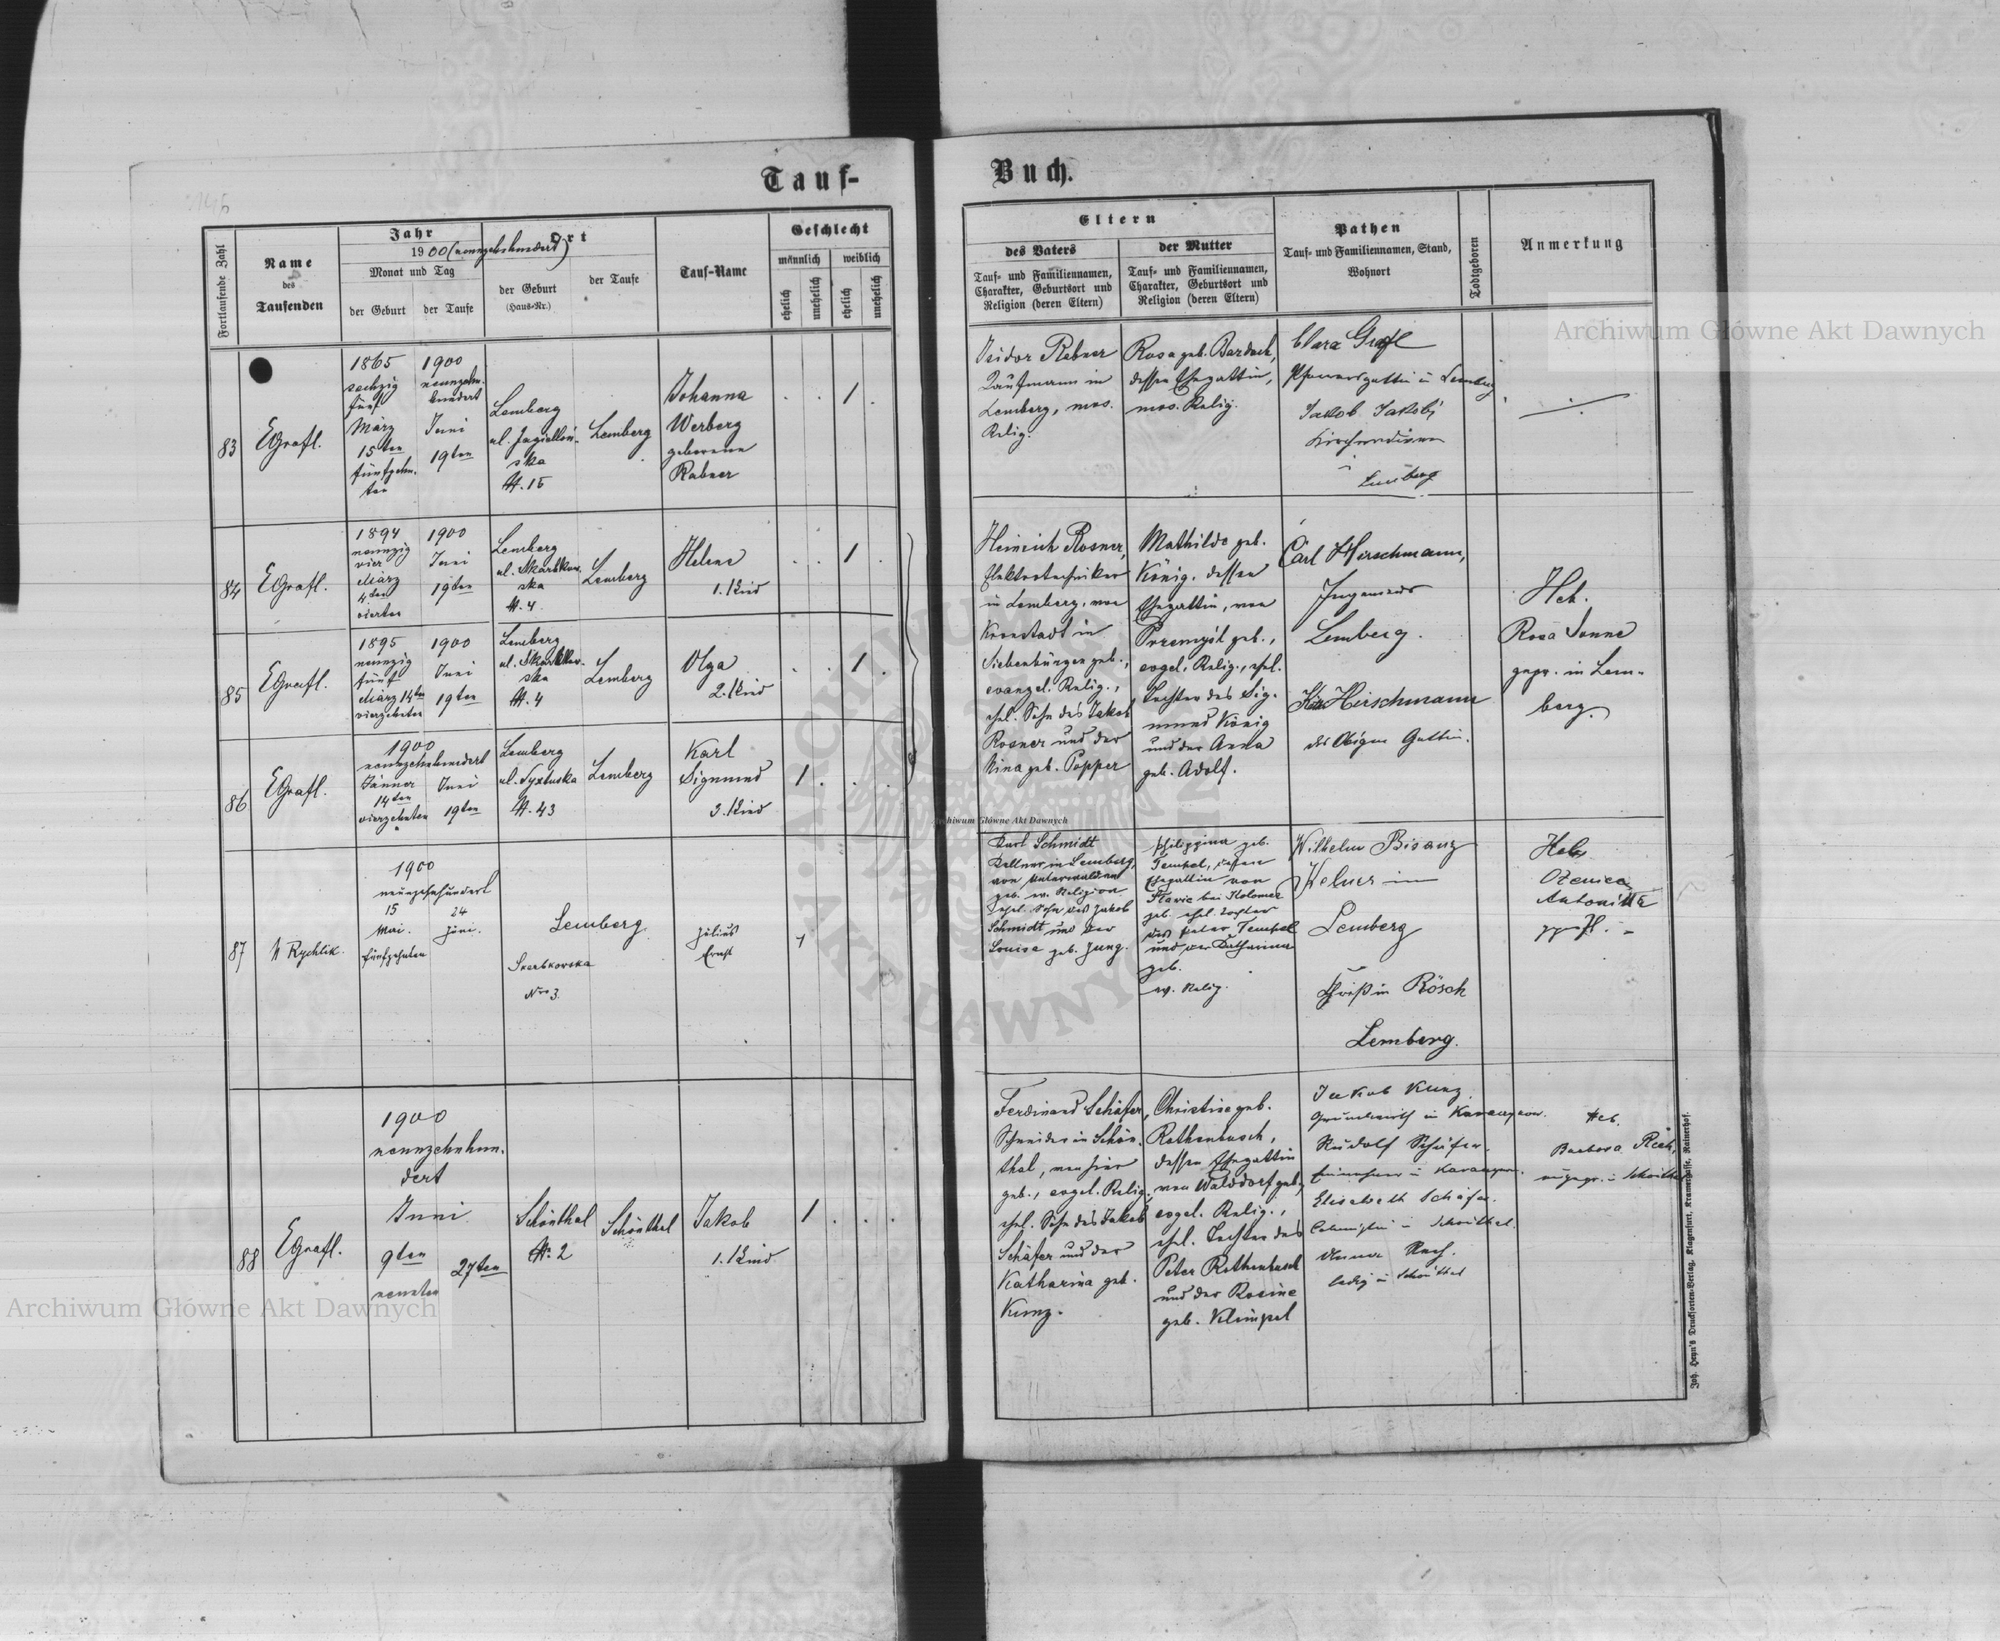 Tauf-
Buch.
146
Fortlaufende Zahl
Name
des
Taufenden
Jahr
1900 (neunzehnhundert)
Monat und Tag
der Geburt
der Taufe
Ort
der Geburt
(Haus-Nr.)
der Taufe
Tauf-Name
Geschlecht
männlich
weiblich
ehelich
unehelich
ehelich
unehelich
Eltern
des Vaters
Tauf- und Familiennamen,
Charakter, Geburtsort und
Religion (deren Eltern)
der Mutter
Tauf- und Familiennamen,
Charakter, Geburtsort und
Religion (deren Eltern)
Pathen
Tauf- und Familiennamen, Stand,
Wohnort
Todtgeboren
Anmerkung
83
EGrafl.
1865
sechzig
fünf
März
15ten
fünfzehn-
ten
1900
neunzehn-
hundert
Juni
19ten
Lemberg
ul. Jagielloń-
ska
N. 15
Lemberg
Johanna
Werberg
geborene
Rabner
1
Isidor Rabner
Kaufmann in
Lemberg, mos.
Relig.
Rosa geb. Bardach,
dessen Ehegattin,
mos. Relig.
Clara Grafl
Pfarrersgattin in Lemberg
Jakob Jakobi
Kirchendiener
in
Lemberg
84
EGrafl.
1894
neunzig
vier
März
4ten
vierten
1900
Juni
19ten
Lemberg
ul. Skarbkow-
ska
N. 4.
Lemberg
Helene
1. Kind
1
Heinrich Rosner,
Elektrotechniker
in Lemberg, von
Kronstadt in
Siebenbürgen geb.,
evangel. Relig.,
ehel. Sohn des Jakob
Rosner und der
Nina geb. Popper
Mathilde geb.
König, dessen
Ehegattin, von
Przemyśl geb.,
evgel. Relig., ehel.
Tochter des Sig-
mund König
und der Anna
geb. Adolf.
Carl Hirschmann,
Ingenieur
Lemberg.
Hirschmann
des Obigen Gattin.
Heb.
Rosa Sonne
gepr. in Lem-
berg.
85
EGrafl.
1895
neunzig
fünf
März 14ten
vierzehnten
1900
Juni
19ten
Lemberg
ul. Skarbkow-
ska
N. 4
Lemberg
Olga
2. Kind
1
86
EGrafl.
1900
neunzehnhundert
Jänner
14ten
vierzehnten
Juni
19ten
Lemberg
ul. Syxtuska
N. 43
Lemberg
Karl
Sigmund
3. Kind
1
87
Rychlik.
1900
neunzehnhundert
15
Mai.
fünfzehnten
24
Juni.
Lemberg
Skarbkowska
Nro 3.
Julius
Ernst
1
Karl Schmidt
Kellner in Lemberg,
von Unterwalden
geb. ev. Religion
ehel. Sohn des Jakob
Schmidt und der
Louise geb. Jung.
Philippine geb.
Tempel, dessen
Ehegattin von
Slavic bei Kolomea
geb. ehel. Tochter
des Peter Tempel
und der Katharina
geb.
ev. Relig.
Wilhelm Bisanz
Kelner in
Lemberg
Rösch
Lemberg.
Heb.
88
EGrafl.
1900
neunzehnhun-
dert
Juni
9ten
neunten
27ten
Schönthal
N. 2
Schönthal
Jakob
1. Kind
1
Ferdinand Schäfer,
Schneider in Schön-
thal, von hier
geb., evgel. Relig.,
ehel. Sohn des Jakob
Schäfer und der
Katharina geb.
Kunz.
Christine geb.
Rothenbusch,
dessen Ehegattin
von Walddorf geb.,
evgel. Relig.,
ehel. Tochter des
Peter Rothenbusch
und der Rosine
geb. Klimpel
Jakob Kunz
Grundwirth in
Rudolf Schäfer.
Elisabeth Schäfer.
in Schönthal.
ledig in Schönthal
Heb.
Barbara
ungepr. in Schönthal
Joh. Heyn's Drucksorten-Verlag, Klagenfurt, Kramergasse, Rainerhof.
Archiwum Główne Akt Dawnych
Archiwum Główne Akt Dawnych
Archiwum Główne Akt Dawnych